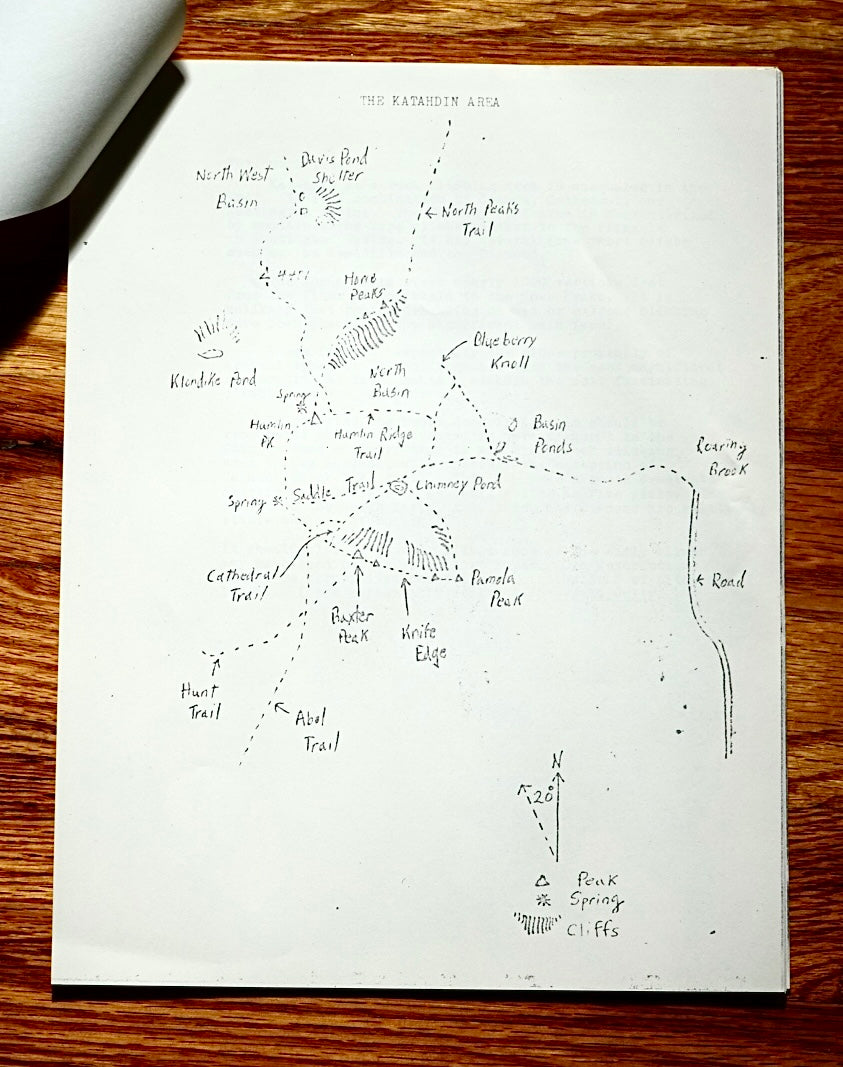 THE KATAHDIN AREA
Davis Pond
Shelter
North West
Basin
North Peaks
Trail
Peaks
Blueberry
Knoll
Klondike Pond
North
Basin
Spring
Hamlin
PK
Hamlin Ridge
Trail
Basin
Ponds
Roaring
Brook
Spring
Saddle Trail
Chimney Pond
Cathedral
Trail
Pamola
Peak
Road
Baxter
Peak
Knife
Edge
Hunt
Trail
Abol
Trail
N
20°
Peak
Spring
Cliffs